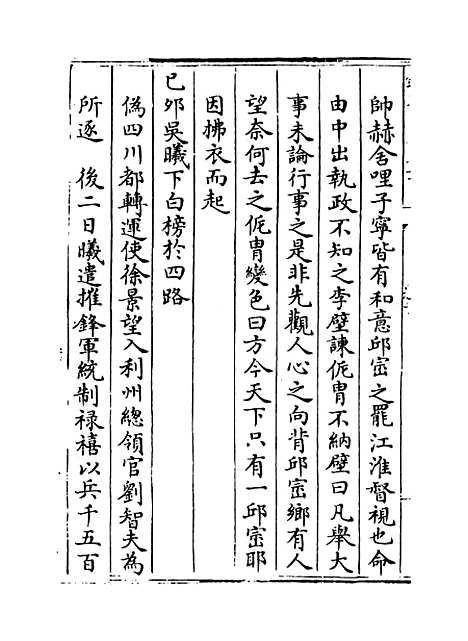 帥赫舍哩子寧皆有和意邱崈之罷江淮督視也命
由中出執政不知之李壁諫侂胄不納壁曰凡舉大
事未論行事之是非先觀人心之向背邱崈鄉有人
望奈何去之侂胄變色曰方今天下只有一邱崈耶
因拂衣而起
已夘吳曦下白榜於四路
偽四川都轉運使徐景望入利州總領官劉智夫為
所逐　後二日曦遣摧鋒軍統制祿禧以兵千五百